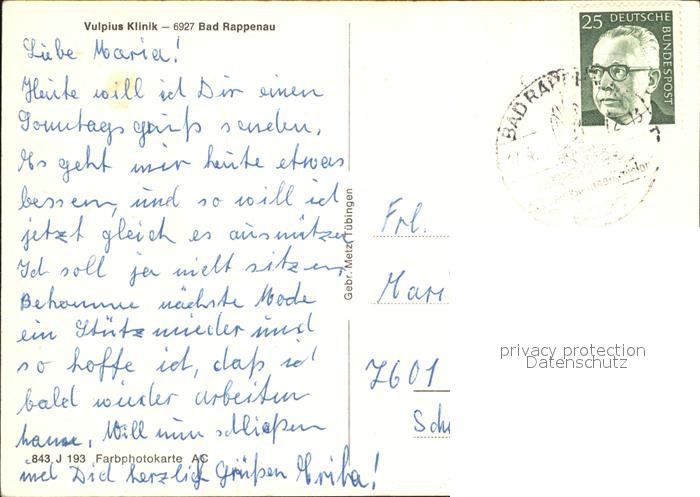 Vulpius Klinik – 6927 Bad Rappenau
Liebe Maria!
Heute will ich Dir einen
Sonntagsgruß senden,
Es geht mir heute etwas
besser, und so will ich
jetzt gleich es ausnützen
Ich soll ja nicht sitzen,
Bekomme nächste Woche
ein Stützmieder und
so hoffe ich, daß ich
bald wieder arbeiten
kann, Will nun schließen
843 J 193 Farbphotokarte AC
und Dich herzlich Grüßen Erika!
Gebr. Metz, Tübingen
25 DEUTSCHE
BUNDESPOST
BAD RAPPE
Frl.
Mari
7601
Sch
privacy protection
Datenschutz